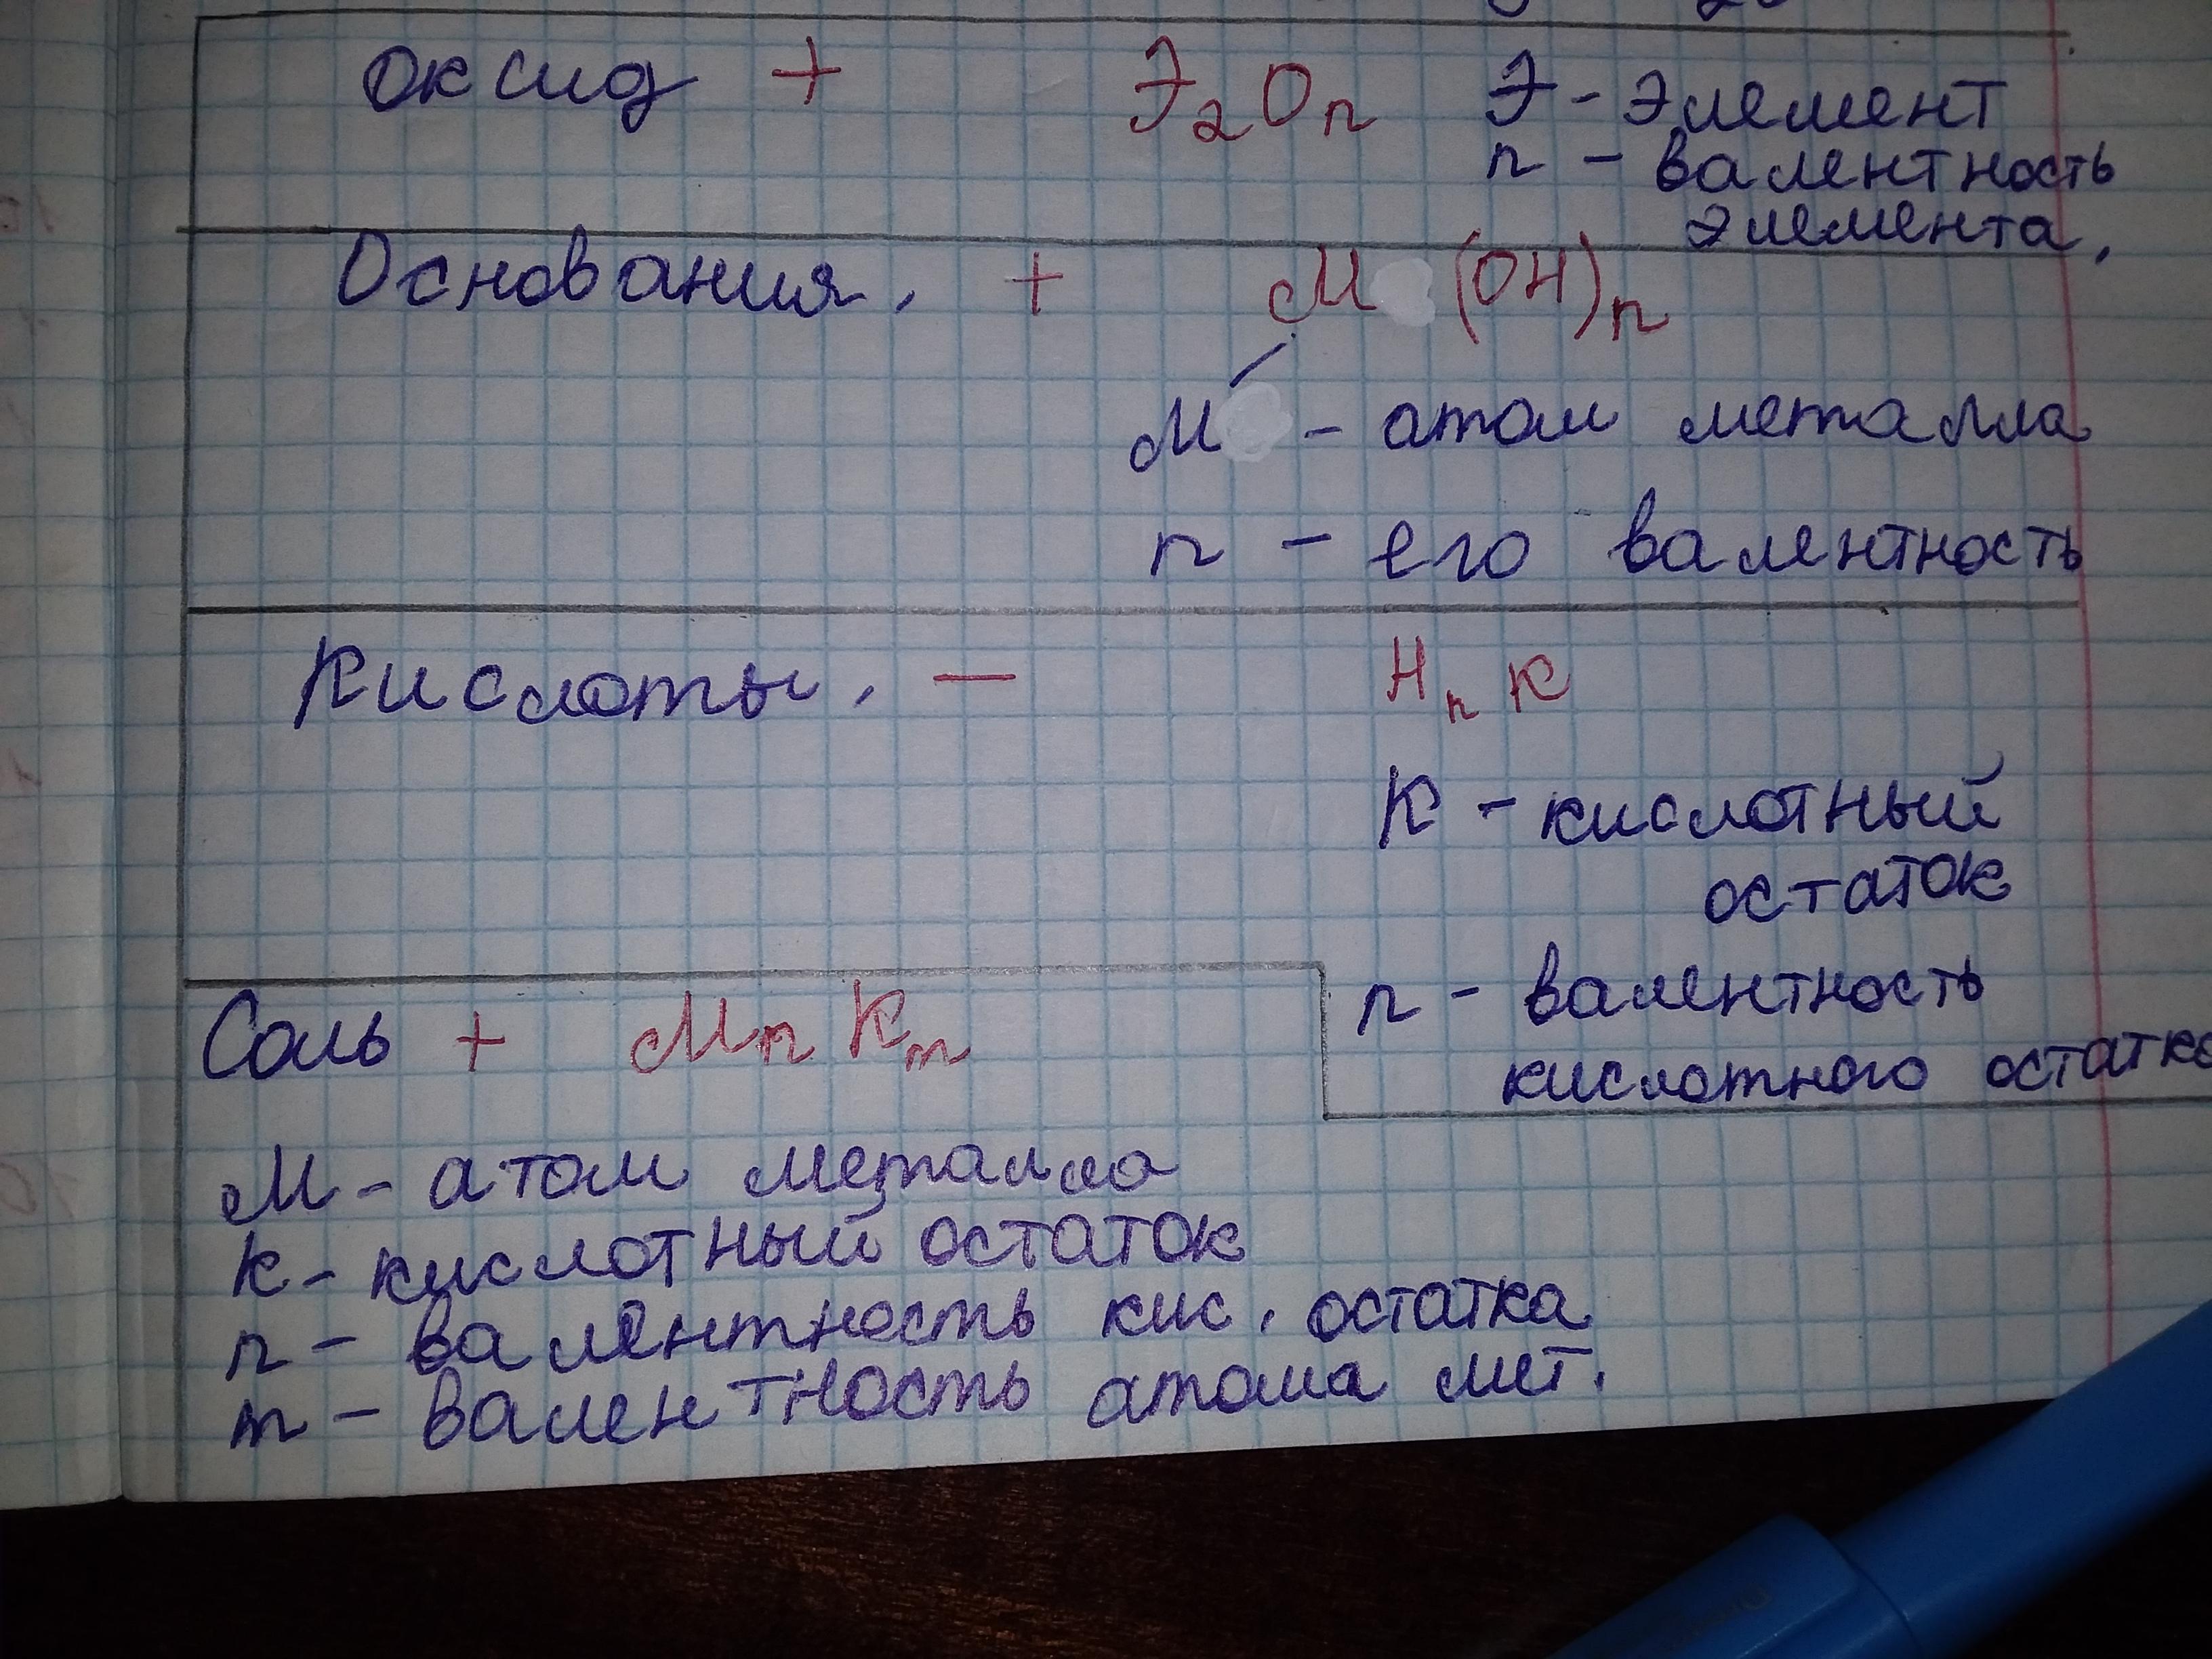 Оксид + Э₂Oₙ Э - элемент
n - валентность
элемента.
Основания. + М (OH)ₙ
М - атом металла
n - его валентность
Кислоты. — Hₙ К
К - кислотный
остаток
n - валентность
кислотного остатка
Соль + Мₙ Кₘ
М - атом металла
К - кислотный остаток
n - валентность кис. остатка
m - валентность атома мет.